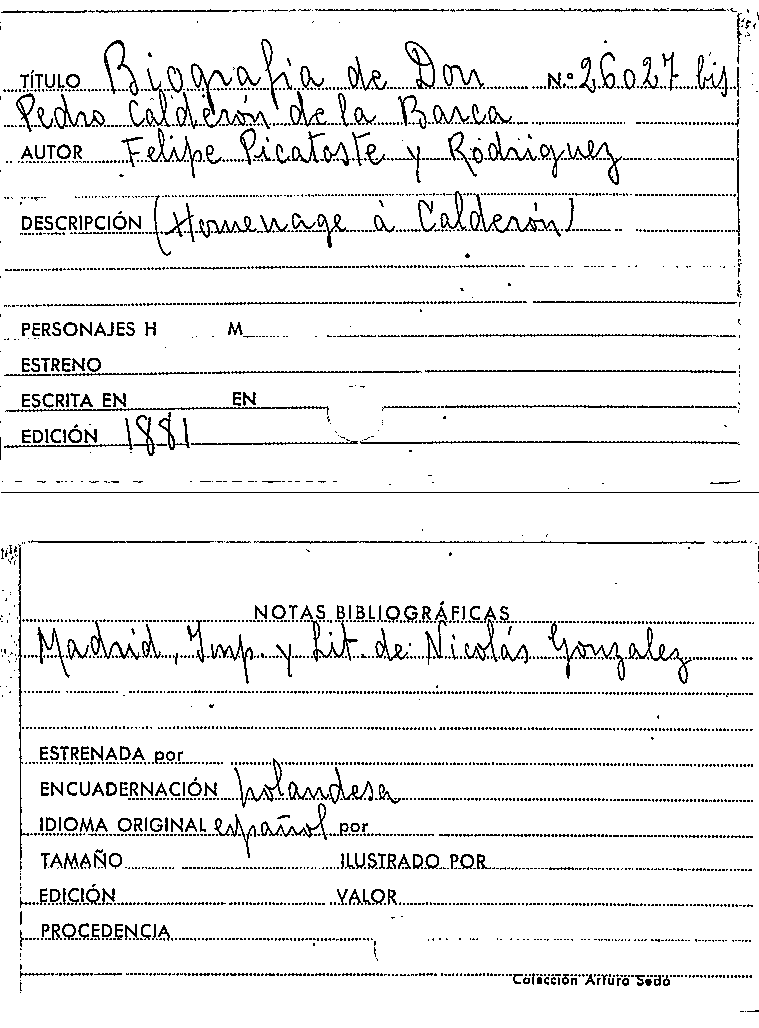 TÍTULO Biografia de Don N.º 26027 bis
Pedro Calderón de la Barca
AUTOR Felipe Picatoste y Rodriguez
DESCRIPCIÓN (Homenage á Calderón)
PERSONAJES H M
ESTRENO
ESCRITA EN EN
EDICIÓN 1881
NOTAS BIBLIOGRÁFICAS
Madrid, Imp. y Lit. de Nicolás Gonzalez
ESTRENADA por
ENCUADERNACIÓN holandesa
IDIOMA ORIGINAL español por
TAMAÑO ILUSTRADO POR
EDICIÓN VALOR
PROCEDENCIA
Colección Arturo Sedó